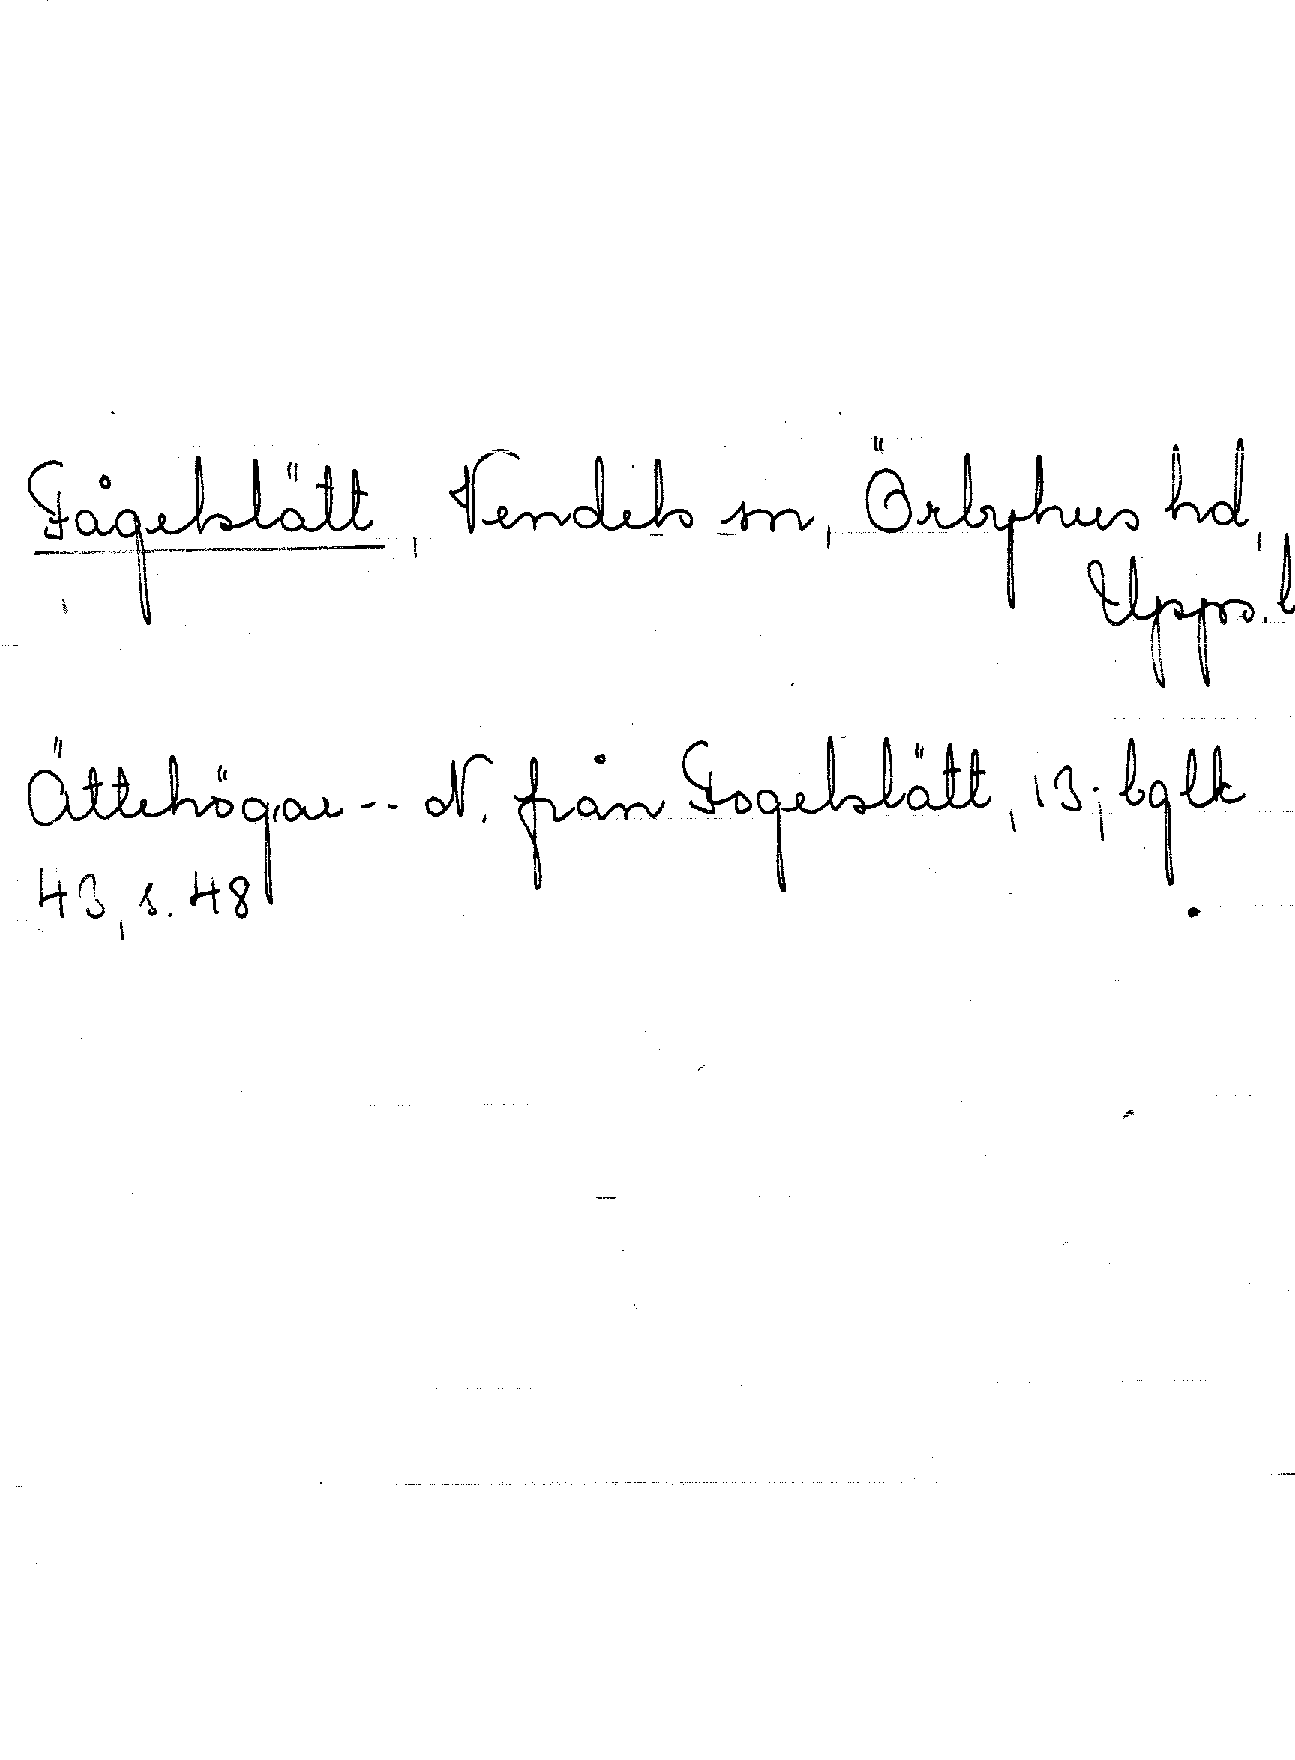 Fågelslätt, Vendels sn, Örbyhus hd,
Upps. l
Ättehögar -- N. från Fogelslätt, 13; bglk
43, s. 48